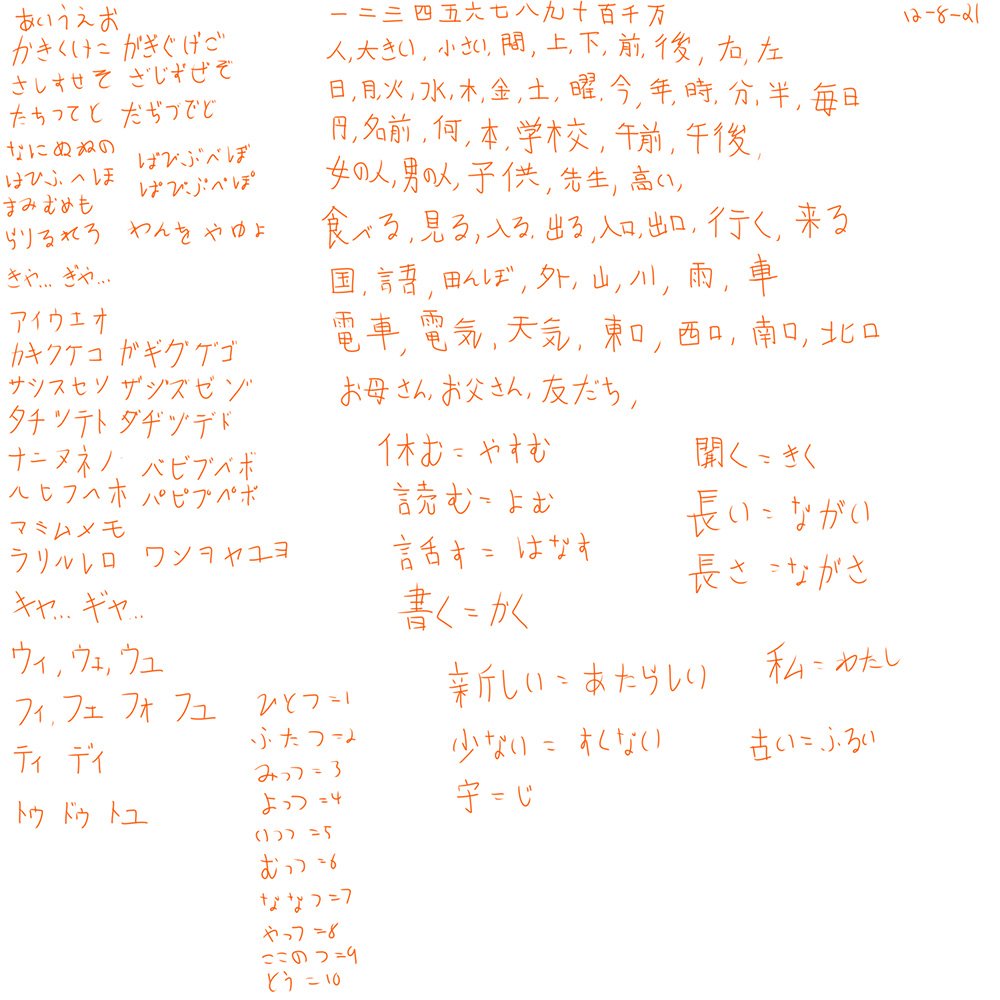 あいうえお
かきくけこ がぎぐげご
さしすせそ ざじずぜぞ
たちつてと だぢづでど
なにぬねの
はひふへほ
ばびぶべぼ
ぱぴぷぺぽ
まみむめも
らりるれろ わんを やゆよ
きゃ... ぎゃ...
アイウエオ
カキクケコ ガギグゲゴ
サシスセソ ザジズゼゾ
タチツテト ダヂヅデド
ナニヌネノ
ハヒフヘホ
バビブベボ
パピプペポ
マミムメモ
ラリルレロ ワンヲヤユヨ
キャ... ギャ...
ウィ, ウェ, ウュ
フィ, フェ フォ フュ
ティ ディ
トゥ ドゥ トュ
ひとつ=1
ふたつ=2
みっつ=3
よっつ=4
いつつ=5
むっつ=6
ななつ=7
やっつ=8
ここのつ=9
とう=10
一二三四五六七八九十百千万
12-8-21
人,大きい,小さい,間,上,下,前,後,右,左
日,月,火,水,木,金,土,曜,今,年,時,分,半,毎日
円,名前,何,本,学校,午前,午後,
女の人,男の人,子供,先生,高い,
食べる,見る,入る,出る,入口,出口,行く,来る
国,語,田んぼ,外,山,川,雨,車
電車,電気,天気,東口,西口,南口,北口
お母さん,お父さん,友だち,
休む=やすむ
読む=よむ
話す=はなす
書く=かく
聞く=きく
長い=ながい
長さ=ながさ
新しい=あたらしい
少ない=すくない
字=じ
私=わたし
古い=ふるい